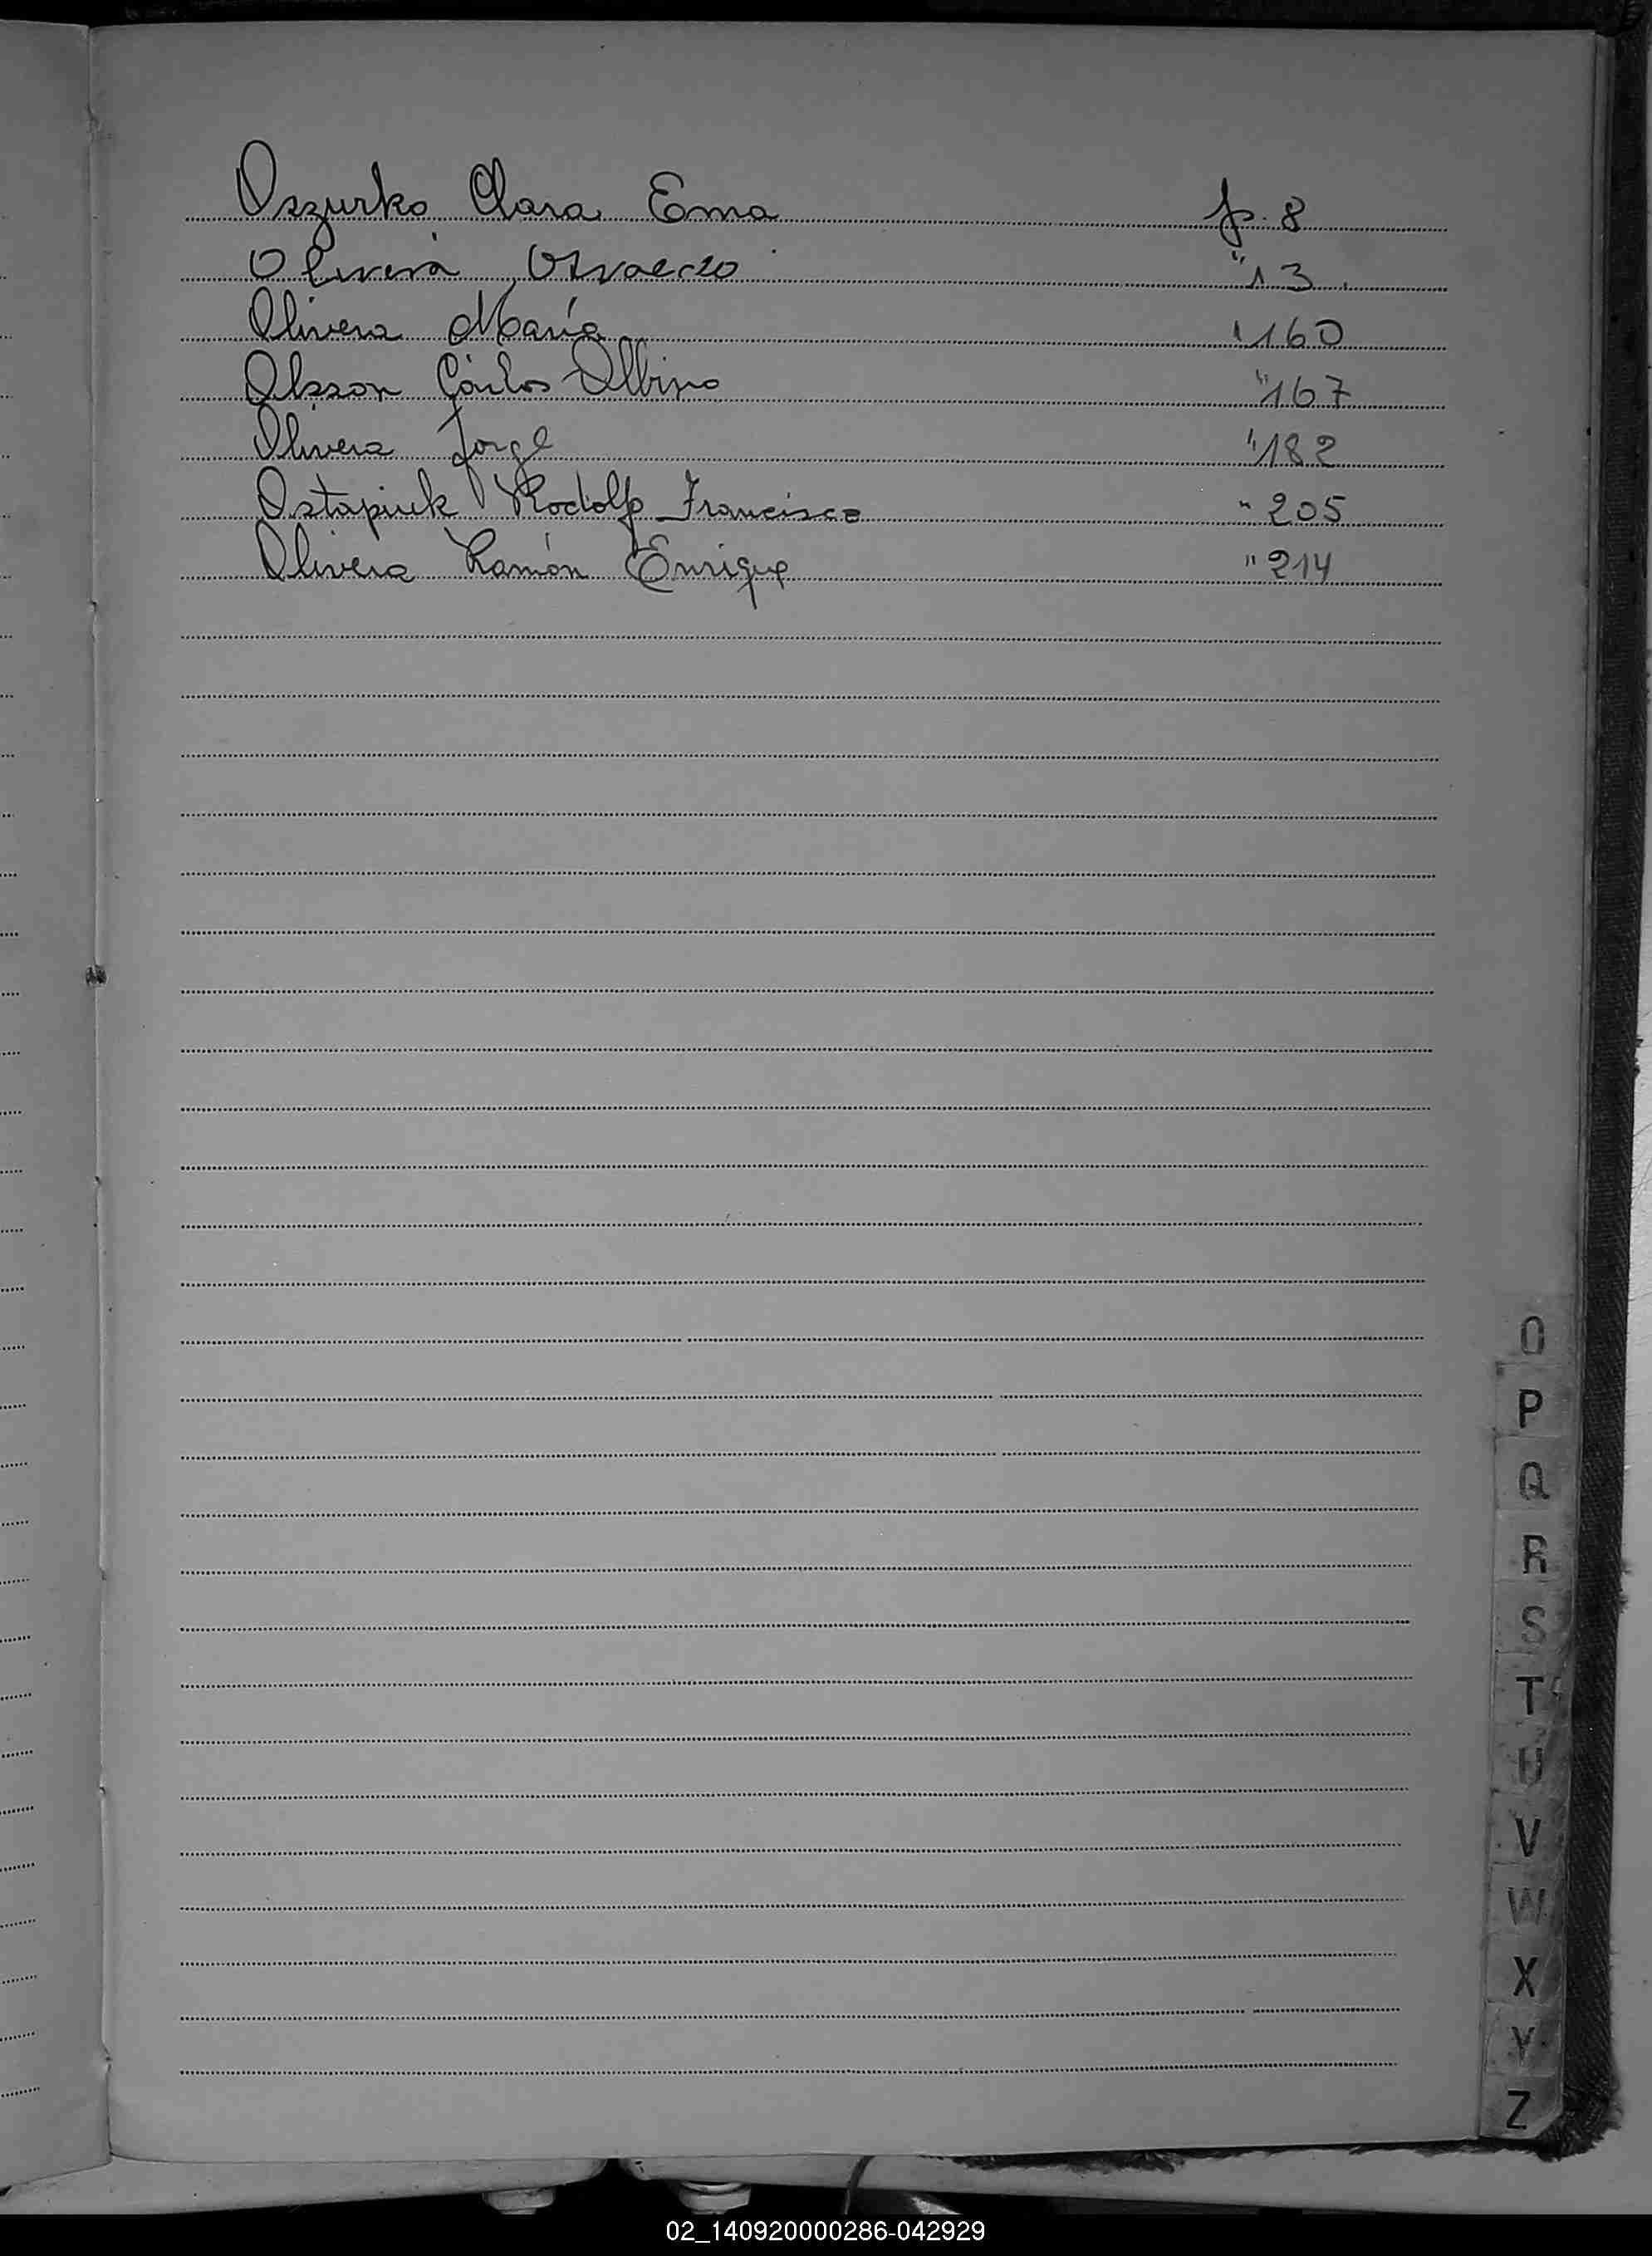 Oszurko Clara Ema p. 8
Olivera Osvaldo " 13
Olivera María " 160
Olsson Carlos Albino " 167
Olivera Jorge " 182
Ostapiuk Rodolfo Francisco " 205
Olivera Ramón Enrique " 214
O
P
Q
R
S
T
U
V
W
X
Y
Z
02_140920000286-042929